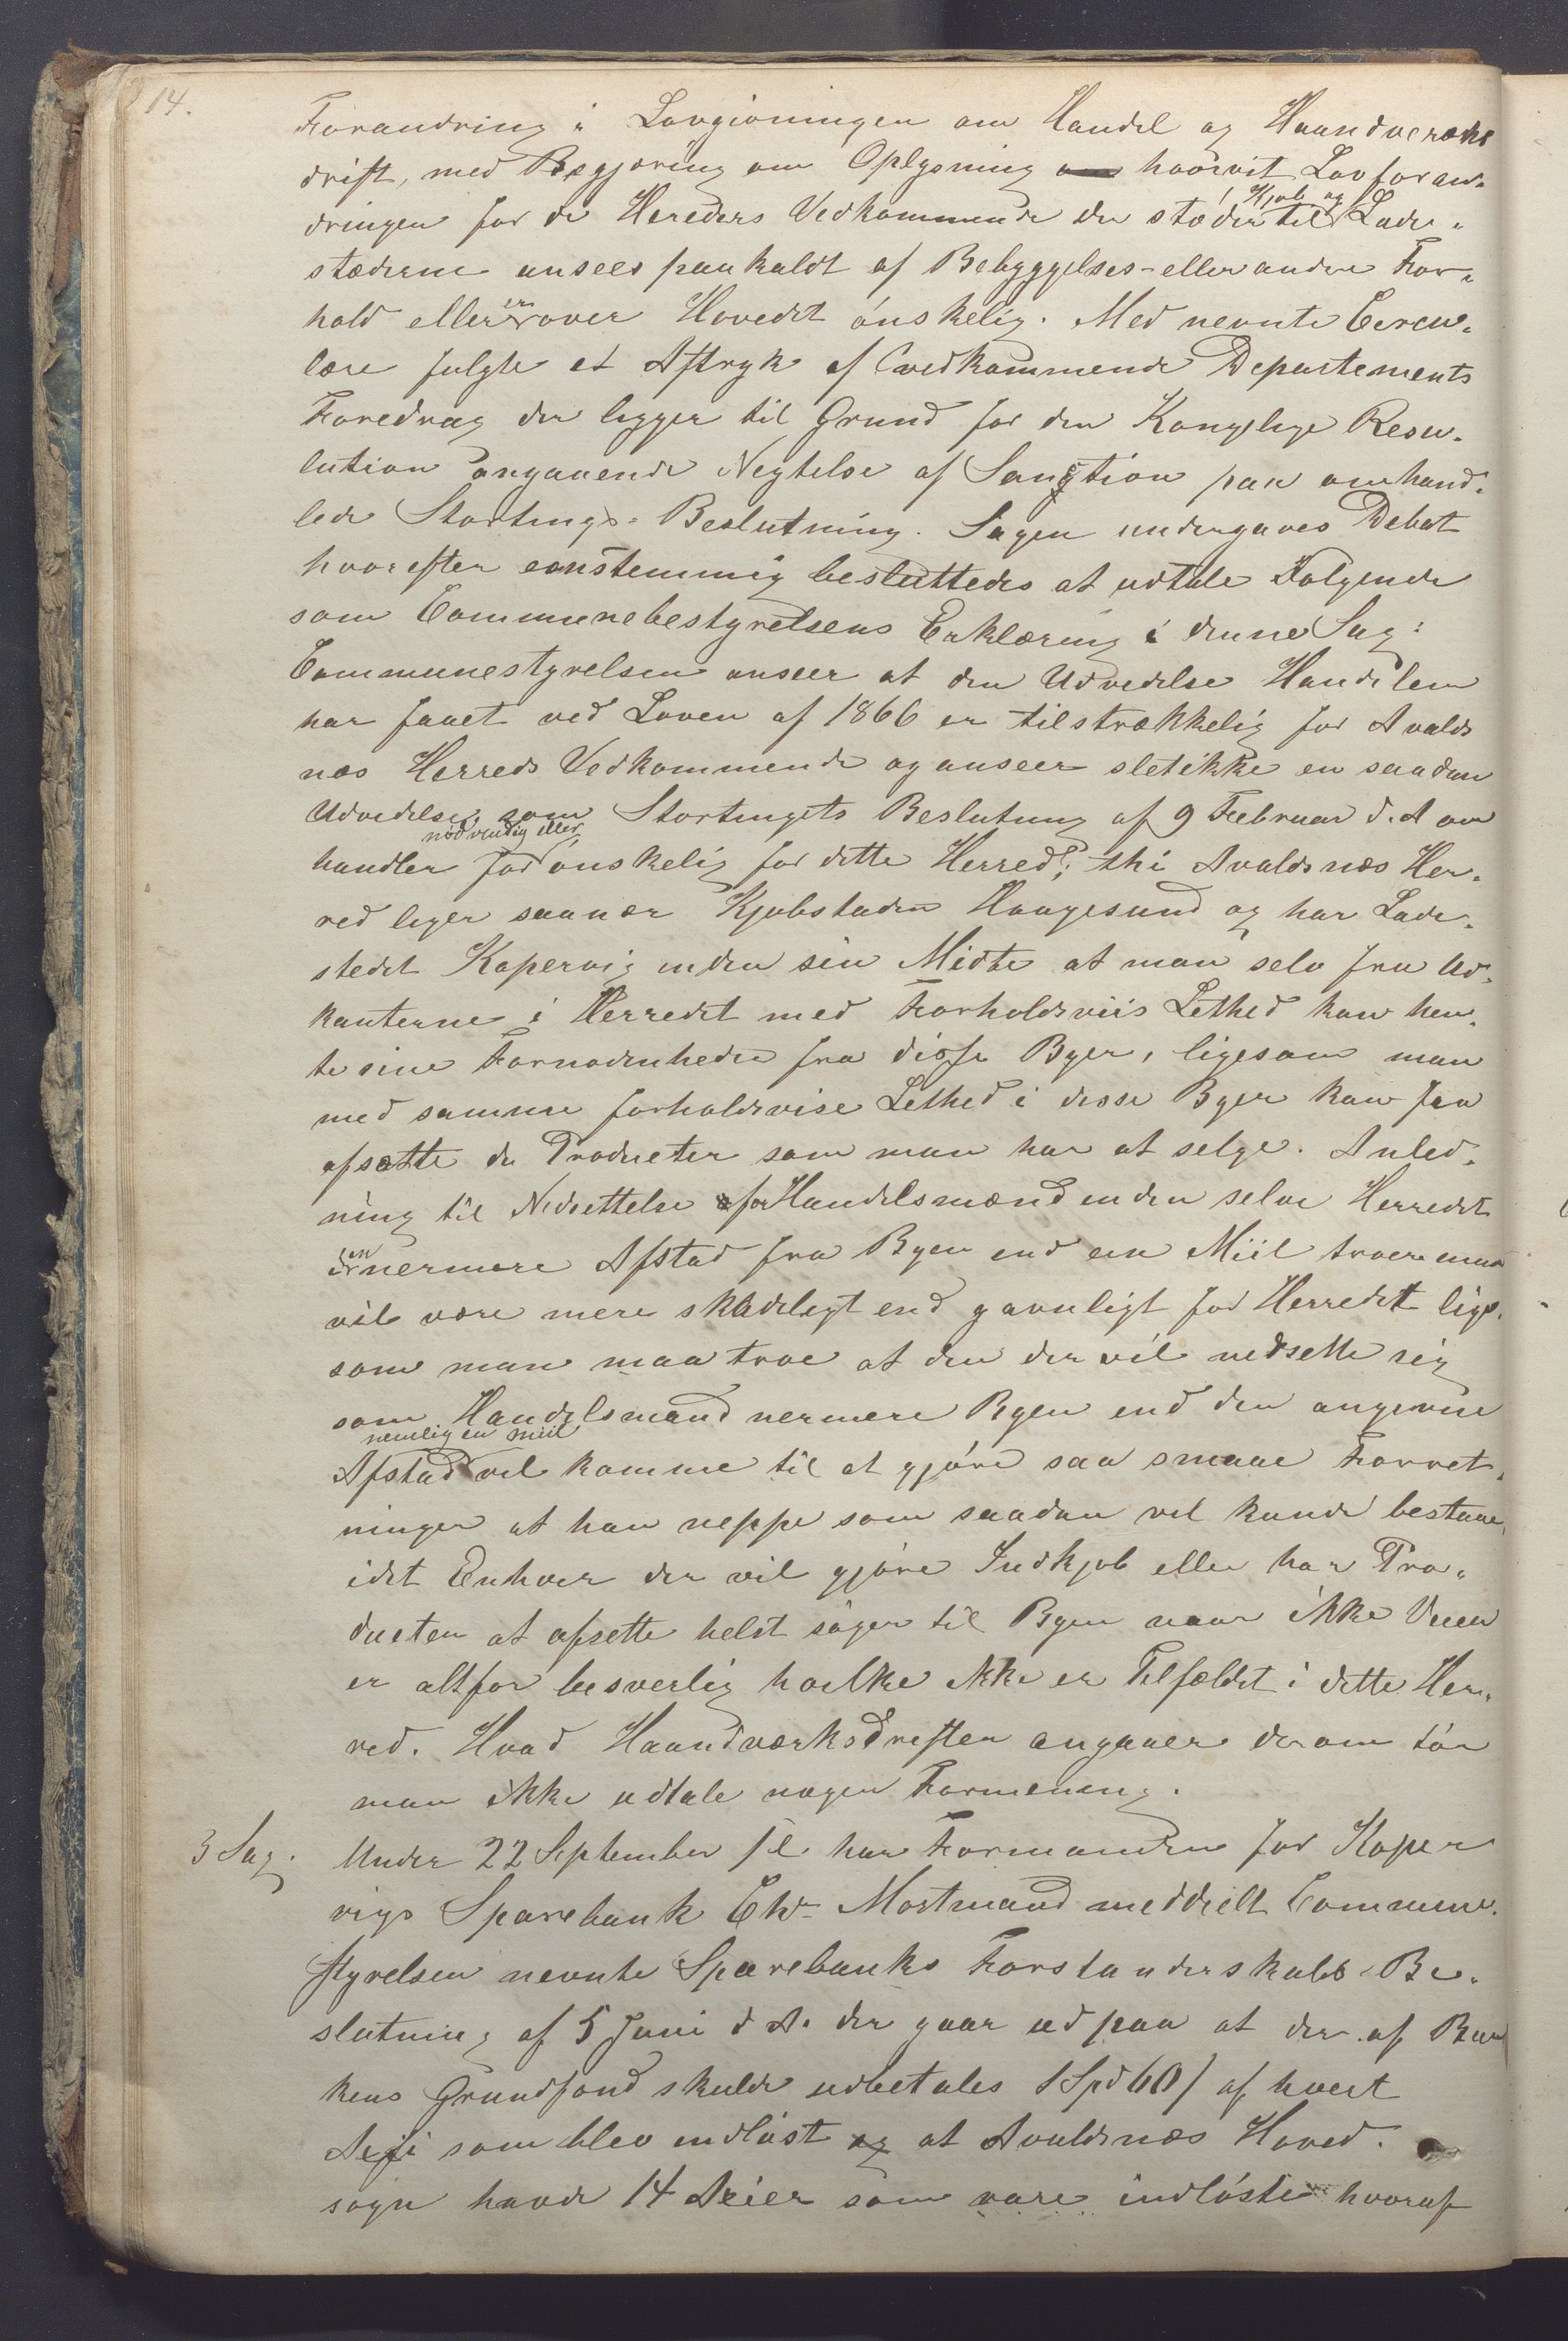 14.
Forandring i Lovgivningen om Handel og Haandværks
drift, med Begjæring om Oplysning om hvorvit Lovforan-
dringen for de Hereders Vedkommende der støder til Kjøb og Lade-
stæderne ansees paakaldt af Bebyggelses- eller andre For-
hold eller er over Hovedet ønskelig. Med nevnte Circu-
lære fulgte et Aftryk af vedkommende Departements
Foredrag der ligger til Grund for den Kongelige Reso-
lution angaaende Negtelse af Sangtion paa omhand-
lede Stortings-Beslutning. Sagen undergaves Debat
hvorefter eenstemmig besluttedes at udtale Følgende
som Communebestyrelsens Erklæring i denne Sag:
Communestyrelsen anseer at den Udvidelse Handelen
har faaet ved Loven af 1866 er tilstrækkelig for Avalds
næs Herreds Vedkommende og anseer slet ikke en saadan
Udvidelse, som Stortingets Beslutning af 9 Februar d. A om
handler for nødvendig eller ønskelig for dette Herred; thi Avaldsnæs Her-
red liger saa nær Kjøbstaden Haugesund og har Lade-
stedet Kopervig inden sin Midte at man selv fra Ud-
kanterne i Herredet med Forholdsviis Lethed kan hen-
te sine Fornødenheder fra disse Byer, ligesom man
med samme forholdsvise Lethed i disse Byer kan faa
afsætte de Producter som man har at selge. Anled-
ning til Nedsettelse for Handelsmænd inden selve Herredet
i en nermere Afstad fra Byen end een Miil troer man
vil være mere skadeligt end gavnligt for Herredet lige-
som man maa troe at den der vil nedsette sig
som Handelsmand nermere Byen end den angivne
Afstad nemlig en Miil vil komme til at gjøre saa smaae Forret-
ninger at han neppe som saadan vil kunde bestaae,
idet Enhver der vil gjøre Indkjøb eller har Pro-
ducter at afsette helst søger til Byen naar ikke Veien
er altfor besverlig hvilke ikke er Tilfældet i dette Her-
red. Hvad Haandværksdriften angaaer derom tør
man ikke udtale nogen Formening.
3 Sag. Under 22 September f.l. har Formanden for Koper
vigs Sparebank Chr Mortmand meddeelt Commune-
styrelsen nevnte Sparebanks Forstanderskabs Be-
slutning af 5 Juni d A. der gaar ud paa at der af Ban
kens Grundfond skulde udbetales 1 Spd 60 / af hvert
Actie som blev indløst og at Avaldsnæs Hoved-
sogn havde 14 Acier som vare indløste hvoraf